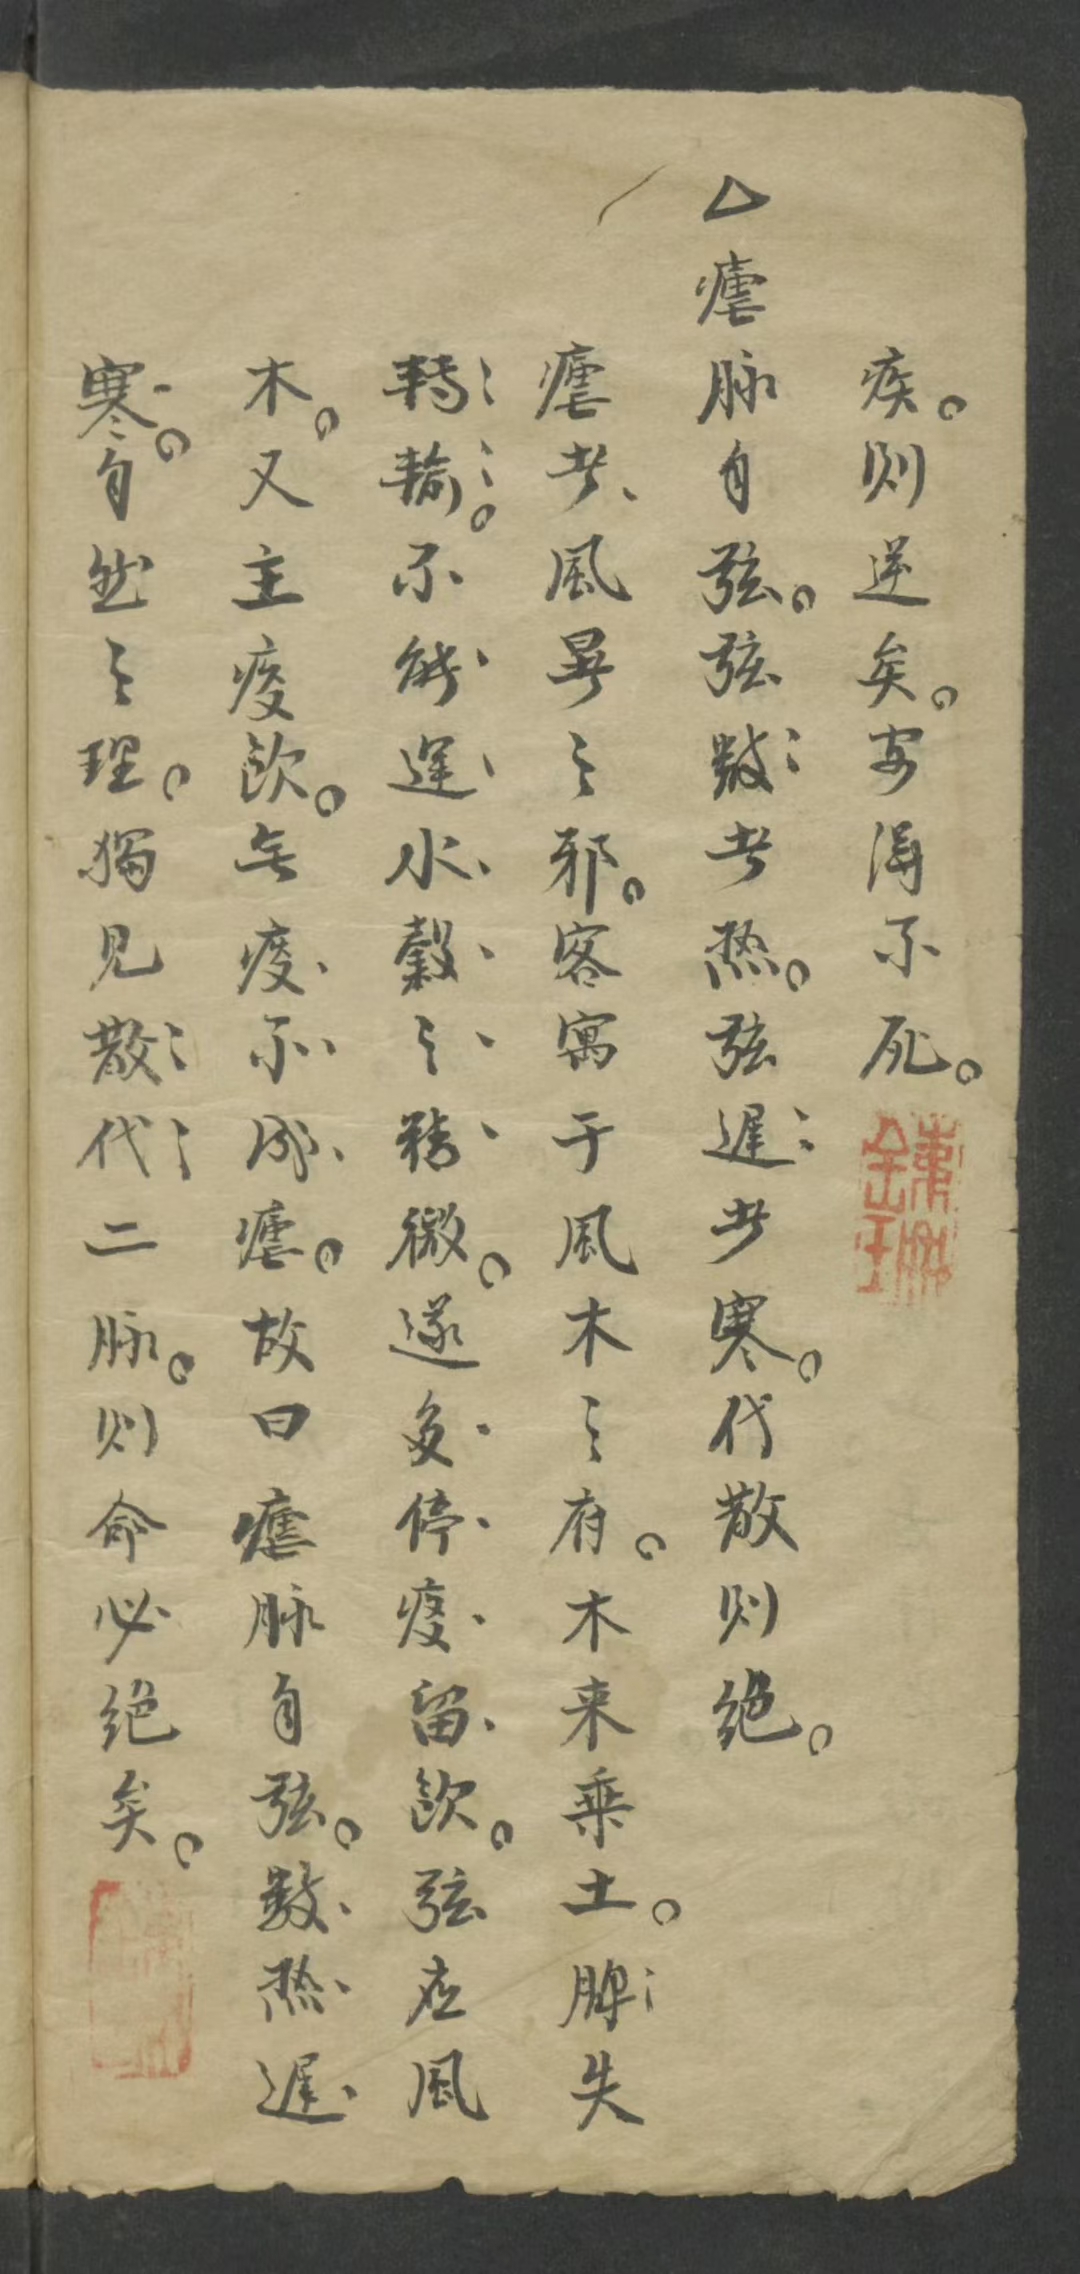 疾。则逆矣。安得不死。
△瘧脉自弦。弦数者热。弦遲者寒。代散则绝。
瘧者、風暑之邪。客寓于風木之府。木来乘土。脾失
轉輸。不能運水穀之精微。遂多停痰留飲。弦应風
木。又主痰飲。无痰不成瘧。故曰瘧脉自弦。数热遲
寒。自然之理。獨見散代二脉。则命必绝矣。